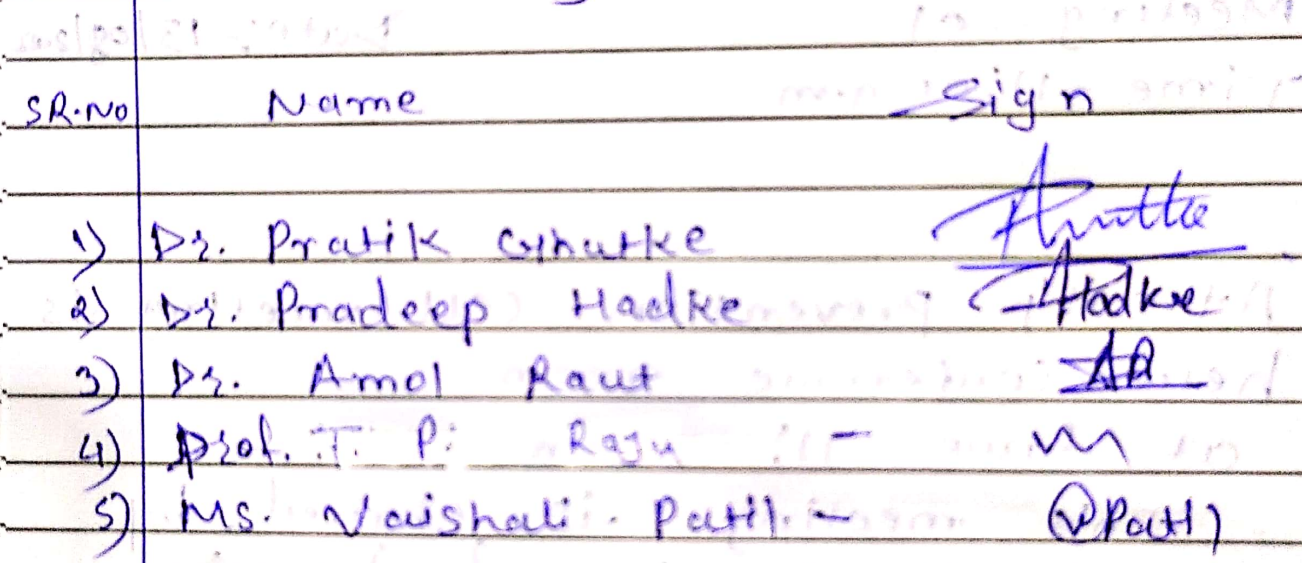 SR.NO Name Sign
1) Dr. Pratik Ghutke
2) Dr. Pradeep Hadke Hadke
3) Dr. Amol Raut AR
4) Prof. T. P. Raju -
5) Ms. Vaishali. Patil. - VPatil